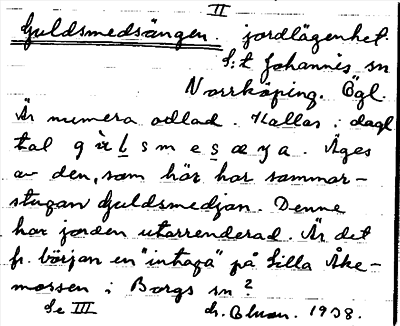 II
Guldsmedsängen. jordlägenhet.
S:t Johannis sn
Norrköping. Ögl.
Är numera odlad. Kallas i dagl.
tal
Äges
av den, som här har sommar-
stugan Guldsmedjan. Denne
har jorden utarrenderad. Är det
fr. början en "intaga" på Lilla Åke-
mossen i Borgs sn?
Se III 1938.